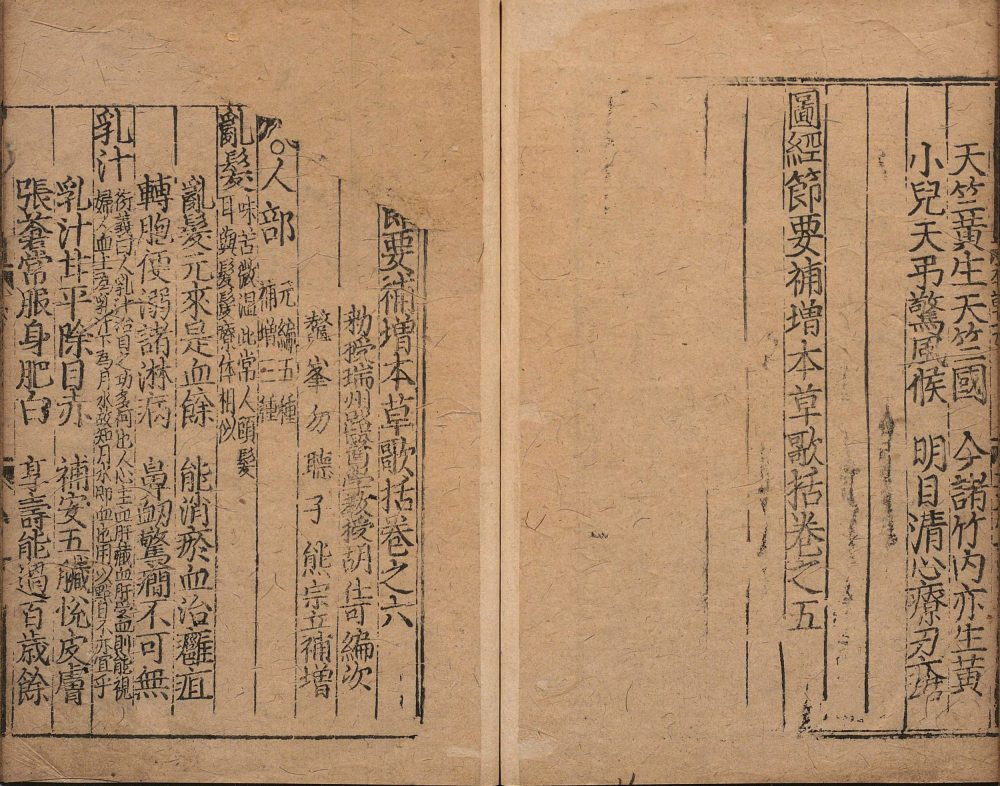 天竺黃生天竺國　今諸竹內亦生黃
小兒天弔驚風候　明目清心療刃瘡
圖經節要補增本草歌括卷之五
節要補增本草歌括卷之六
勑授瑞州路醫學教授胡仕可編次
鼇峯勿聽子熊宗立補增
○人部
元編五種
補增三種
亂髮
味苦微溫此常人頭髮
耳與髮髲療体相似
亂髮元來是血餘　能消瘀血治癰疽
轉胞便溺諸淋病　鼻衂驚癇不可無
乳汁
衍義曰人乳汁治目之功多何也人心主血肝藏血肝受血則能視
婦人血上為乳汁下為月水故知月水即血也用以點目不亦宜乎
乳汁甘平除目赤　補安五臟悅皮膚
張蒼常服身肥白　享壽能過百歲餘